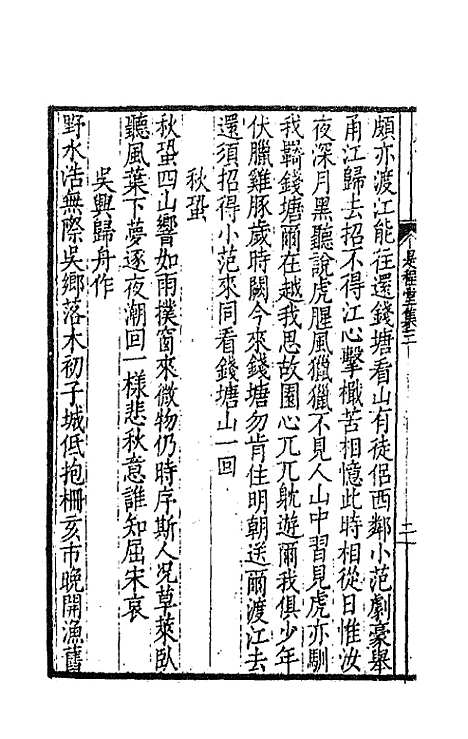 是程堂集三
二
頗亦渡江能往還錢塘看山有徒侶西鄰小范劇豪舉
甬江歸去招不得江心擊檝苦相憶此時相從日惟汝
夜深月黑聽說虎腥風獵獵不見人山中習見虎亦馴
我羇錢塘爾在越我思故園心兀兀躭遊爾我俱少年
伏臘雞豚歲時闕今來錢塘勿肯住明朝送爾渡江去
還須招得小范來同看錢塘山一回
秋蛩
秋蛩四山響如雨撲窗來微物仍時序斯人况草萊臥
聽風葉下夢逐夜潮回一樣悲秋意誰知屈宋哀
吳興歸舟作
野水浩無際吳鄉落木初子城低抱柵亥市晚開漁舊